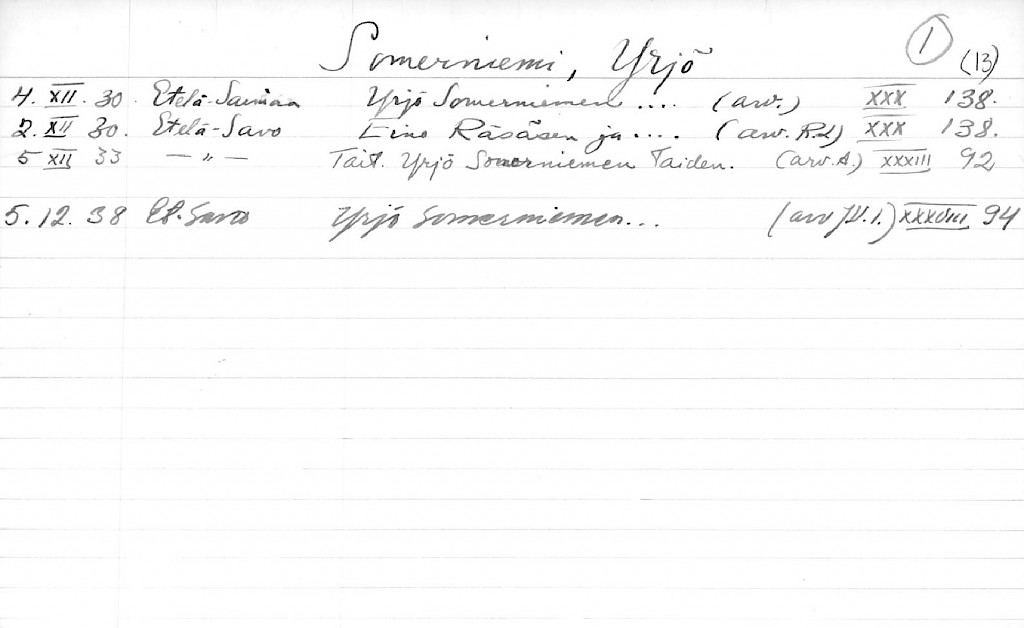 Somerniemi, Yrjö 1 (13)
4. XII. 30. Etelä-Saimaa Yrjö Somerniemen .... (arv.) XXX 138.
2. XII 30. Etelä-Savo Eino Räsäsen ja .... (arv. R.L) XXX 138.
5 XII 33 — " — Tait. Yrjö Somerniemen Taiden. (arv. A.) XXXIII 92
5. 12. 38 Et. Savo Yrjö Somerniemen... (arv. V. I.) XXXVIII 94